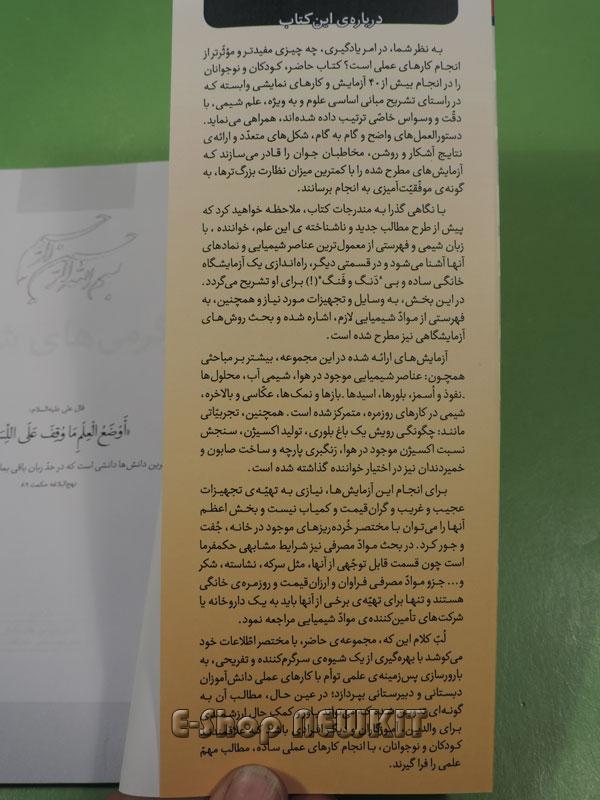 درباره‌ی این کتاب
به نظر شما، در امر یادگیری، چه چیزی مفیدتر و مؤثرتر از
انجام کارهای عملی است؟ کتاب حاضر، کودکان و نوجوانان
را در انجام بیش از ۴۰ آزمایش و کارهای نمایشی وابسته که
در راستای تشریح مبانی اساسی علوم و به ویژه، علم شیمی، با
دقّت و وسواس خاصّی ترتیب داده شده‌اند، همراهی می‌نماید.
دستورالعمل‌های واضح و گام به گام، شکل‌های متعدّد و ارائه‌ی
نتایج آشکار و روشن، مخاطبان جوان را قادر می‌سازند که
آزمایش‌های مطرح شده را با کمترین میزان نظارت بزرگ‌ترها، به
گونه‌ی موفّقیّت‌آمیزی به انجام برسانند.
با نگاهی گذرا به مندرجات کتاب، ملاحظه خواهید کرد که
پیش از طرح مطالب جدید و ناشناخته ی این علم، خواننده ، با
زبان شیمی و فهرستی از معمول‌ترین عناصر شیمیایی و نمادهای
آنها آشنا می‌شود و در قسمتی دیگر، راه‌اندازی یک آزمایشگاه
خانگی ساده و بی "دَنگ و فَنگ"(!) برای او تشریح می‌گردد.
در این بخش، به وسایل و تجهیزات مورد نیاز و همچنین، به
فهرستی از موادّ شیمیایی لازم، اشاره شده و بحث روش‌های
آزمایشگاهی نیز مطرح شده است.
آزمایش‌های ارائه شده در این مجموعه، بیشتر بر مباحثی
همچون: عناصر شیمیایی موجود در هوا، شیمی آب، محلول‌ها
.نفوذ و اُسمز، بلورها، اسیدها .بازها و نمک‌ها، عکّاسی و بالاخره،
شیمی در کارهای روزمره، متمرکز شده است. همچنین، تجربیّاتی
مانند: چگونگی رویش یک باغ بلوری، تولید اکسیژن، سنجش
نسبت اکسیژن موجود در هوا، زنگبری پارچه و ساخت صابون و
خمیردندان نیز در اختیار خواننده گذاشته شده است.
برای انجام این آزمایش‌ها، نیازی به تهیّه‌ی تجهیزات
عجیب و غریب و گران‌قیمت و کمیاب نیست و بخش اعظم
آنها را می‌توان با مختصر خُرده‌ریزهای موجود در خانه، جُفت
و جور کرد. در بحث موادّ مصرفی نیز شرایط مشابهی حکمفرما
است چون قسمت قابل توجّهی از آنها، مثل سرکه، نشاسته، شکر
و... جزو موادّ مصرفی فراوان و ارزان‌قیمت و روزمره‌ی خانگی
هستند و تنها برای تهیّه‌ی برخی از آنها باید به یک داروخانه یا
شرکت‌های تأمین‌کننده‌ی موادّ شیمیایی مراجعه نمود.
لُبّ کلام این که، مجموعه‌ی حاضر، با مختصر اطّلاعات خود
می‌کوشد با بهره‌گیری از یک شیوه‌ی سرگرم‌کننده و تفریحی، به
بارورسازی پس‌زمینه‌ی علمی توأم با کارهای عملی دانش‌آموزان
دبستانی و دبیرستانی بپردازد؛ در عین حال، مطالب آن به
گونه‌ای کمک حال ارزشمندی
برای والدین
کودکان و نوجوانان، با انجام کارهای عملی ساده، مطالب مهمّ
علمی را فرا گیرند.
E-shop NEWKIT
بسم الله الرحمن الرحیم
قال علی علیه‌السلام:
«أَوْضَعُ الْعِلْمِ مَا وُقِفَ عَلَى
دانش‌ها دانشی است که در حدّ زبان باقی
نهج‌البلاغه حکمت